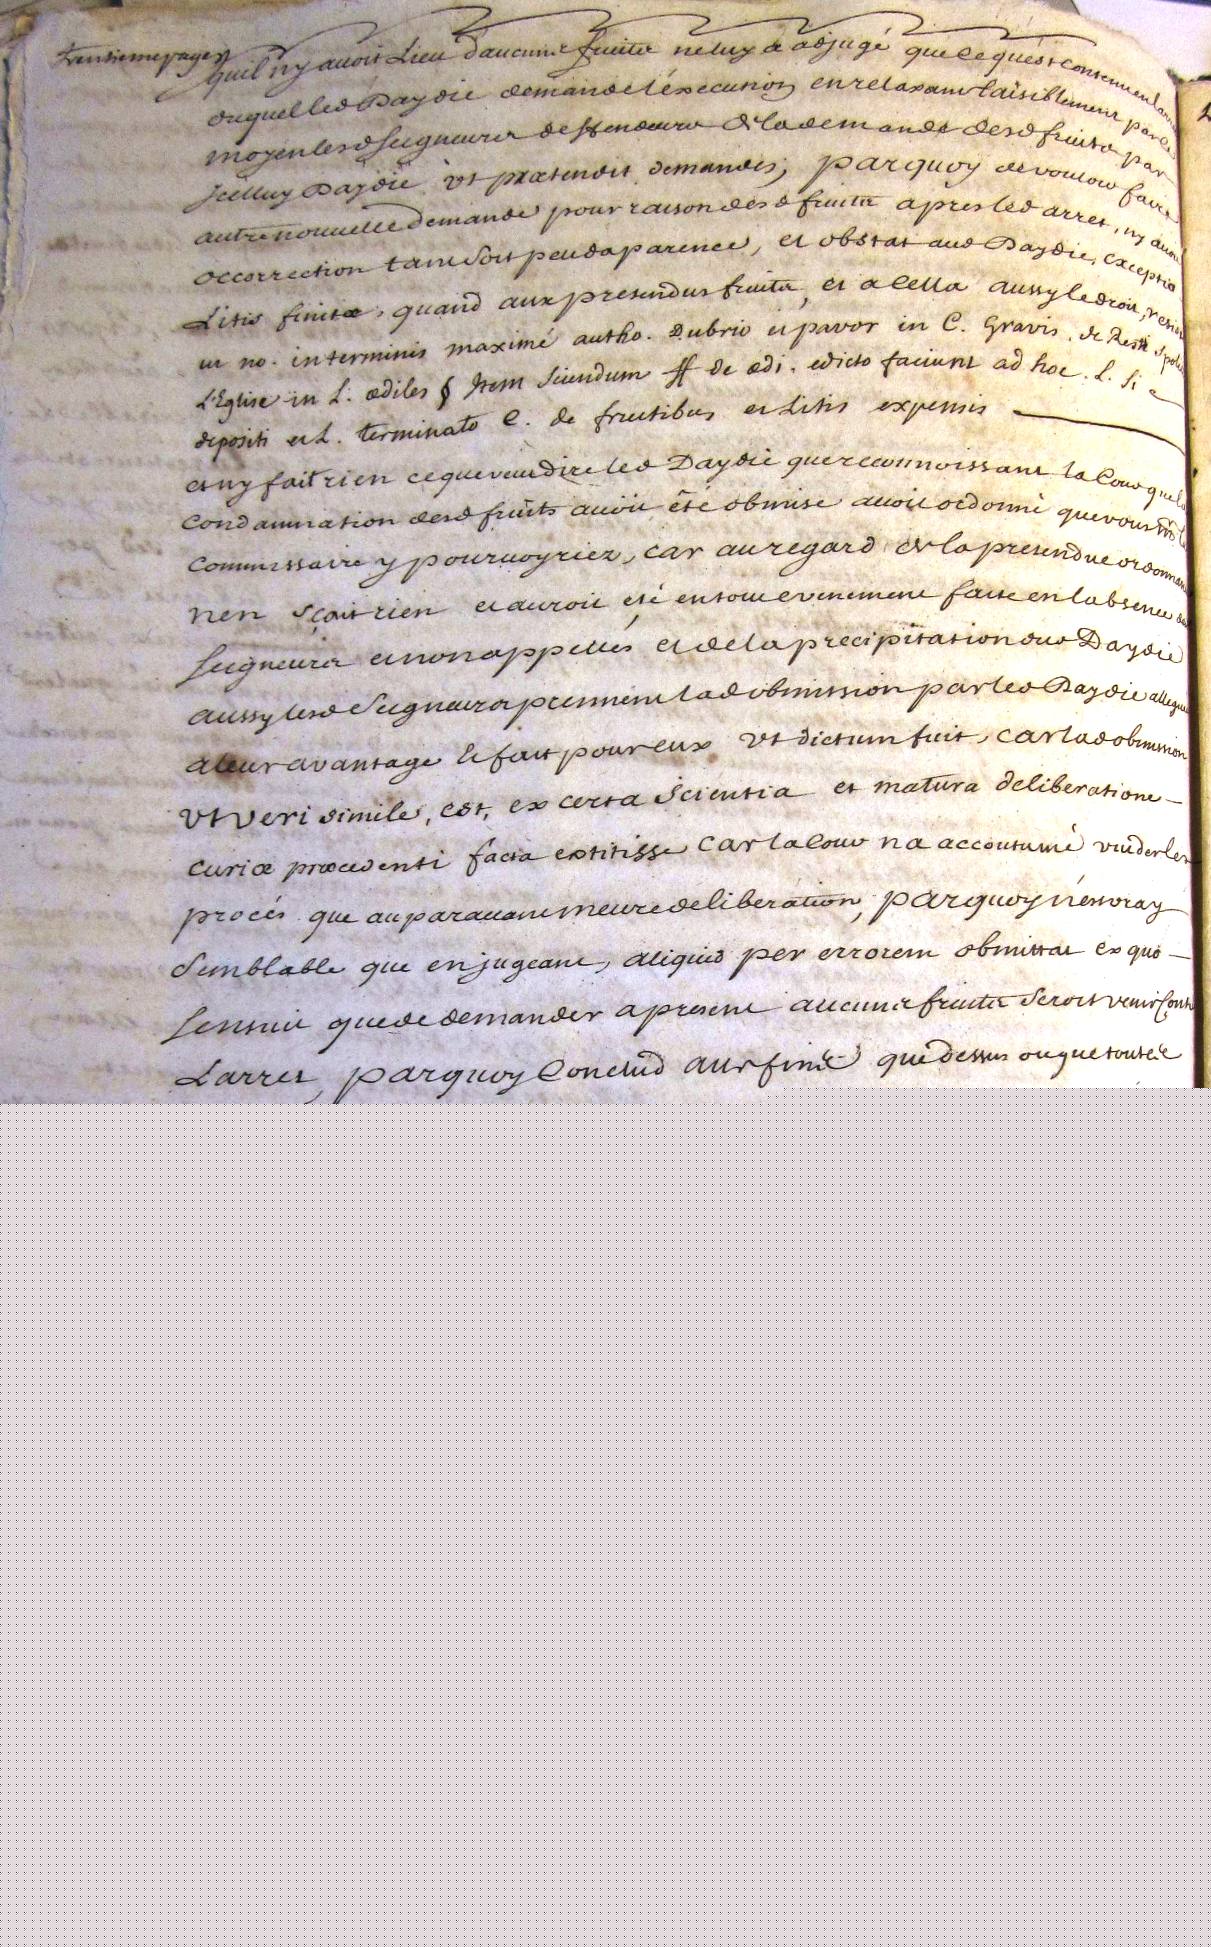 trentiemepages
quil n'y avoit Lieu d'aucuns fruits ne luy a adjugé que ce quest contenu en larret
duquel led Daydie demande l'éxecution, en relaxant taisiblement par ce
moyen lesd Seigneurs deffendeurs de la demande desd fruits par
Jcelluy Daydie ut prætendit demandés, parquoy de vouloir faire
autre nouvelle demande pour raison desd fruits apres led arret, ny auroit
occorrection tant soit peu daparence, et obstat aud Daydie, exceptio
Litis finitæ, quand aux pretendus fruits, et a cella aussy le droit,
ut no. in terminis maximé autho. Dubrio et pavor in C. Gravis. de Resti spolia
L'Eglise in L. ædiles § Item Sciendum ff de ædi. edicto faciunt ad hoc. L. Si
depositi et L. terminato C. de fructibus et Litis expensis
et ny fait rien ce que veut dire led Daydie que reconnoissant la Cour que la
condamnation desd fruits avoit été obmise avoit ordonné que vous
Commissaire y pourvoyriez, car au regard de la pretendue ordonnance
nen sçait rien et auroit, été en tout evenement faite en labsence
Seigneurs et non appellés et de la precipitation dud Daydie
aussy lesd Seigneurs prennent lad obmission par led Daydie allegué
a leur avantage le fait pour eux ut dictum fuit, car lad obmission
ut veri simile, est, ex certa scientia et matura deliberatione
curiæ procedenti facta extitisse car la Cour na accoutumé vuider les
procés que auparavant meure deliberation, parquoy n'est vray
Semblable que en jugeant, aliquid per errorem obmittat ex quo
Sensuit que de demander a present aucuns fruits Seroit venir Contre
Larret, parquoy Conclud aux fins que dessus ou que toutes